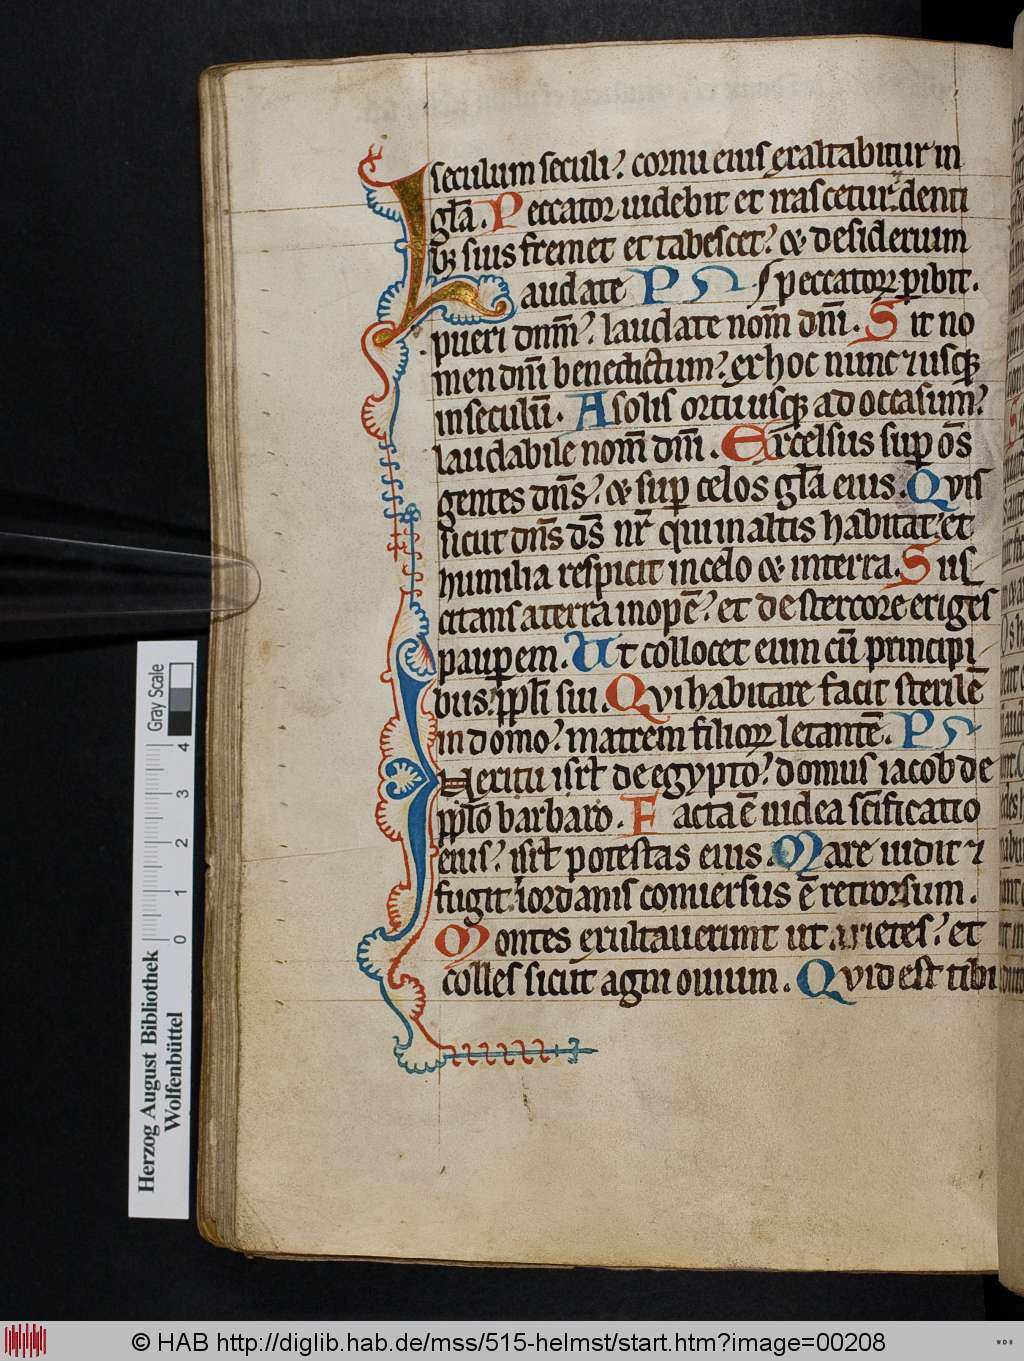 seculum seculi? cornu eius exaltabitur in
gl̄a. Peccator uidebit et irascetur? denti
bꝫ suis fremet et tabescet? & desiderium
Laudate PS peccatoꝝ ꝑibit.
pueri dnm̄? laudate nom̄ dn̄i. Sit no
men dn̄i benedictum? ex hoc nunc ⁊ usqꝫ
in seculū. A solis ortu usqꝫ ad occasum?
laudabile nom̄ dn̄i. Excelsus suꝑ om̄s
gentes dn̄s? & suꝑ celos gl̄a eius. Qvis
sicut dn̄s ds̄ nr̄ qui in altis habitat? et
humilia respicit in celo & in terra. Sus
citans a terra inopē? et de stercore eriges
pauꝑem. Ut collocet eum cū principi
bus? pp̄li sui. Qvi habitare facit sterilē
in domo? matrem filioꝝ letantē. PS
In exitu isrl̄ de egypto? domus iacob de
pp̄lo barbaro. Facta ē iudea sc̄ificatio
eius? isrl̄ potestas eius. Mare uidit ⁊
fugit? iordanis conuersus ē retrorsum.
Montes exultauerunt ut arietes? et
colles sicut agni ouium. Qvid est tibi
Gray Scale
4
3
2
1
0
Herzog August Bibliothek
Wolfenbüttel
© HAB http://diglib.hab.de/mss/515-helmst/start.htm?image=00208